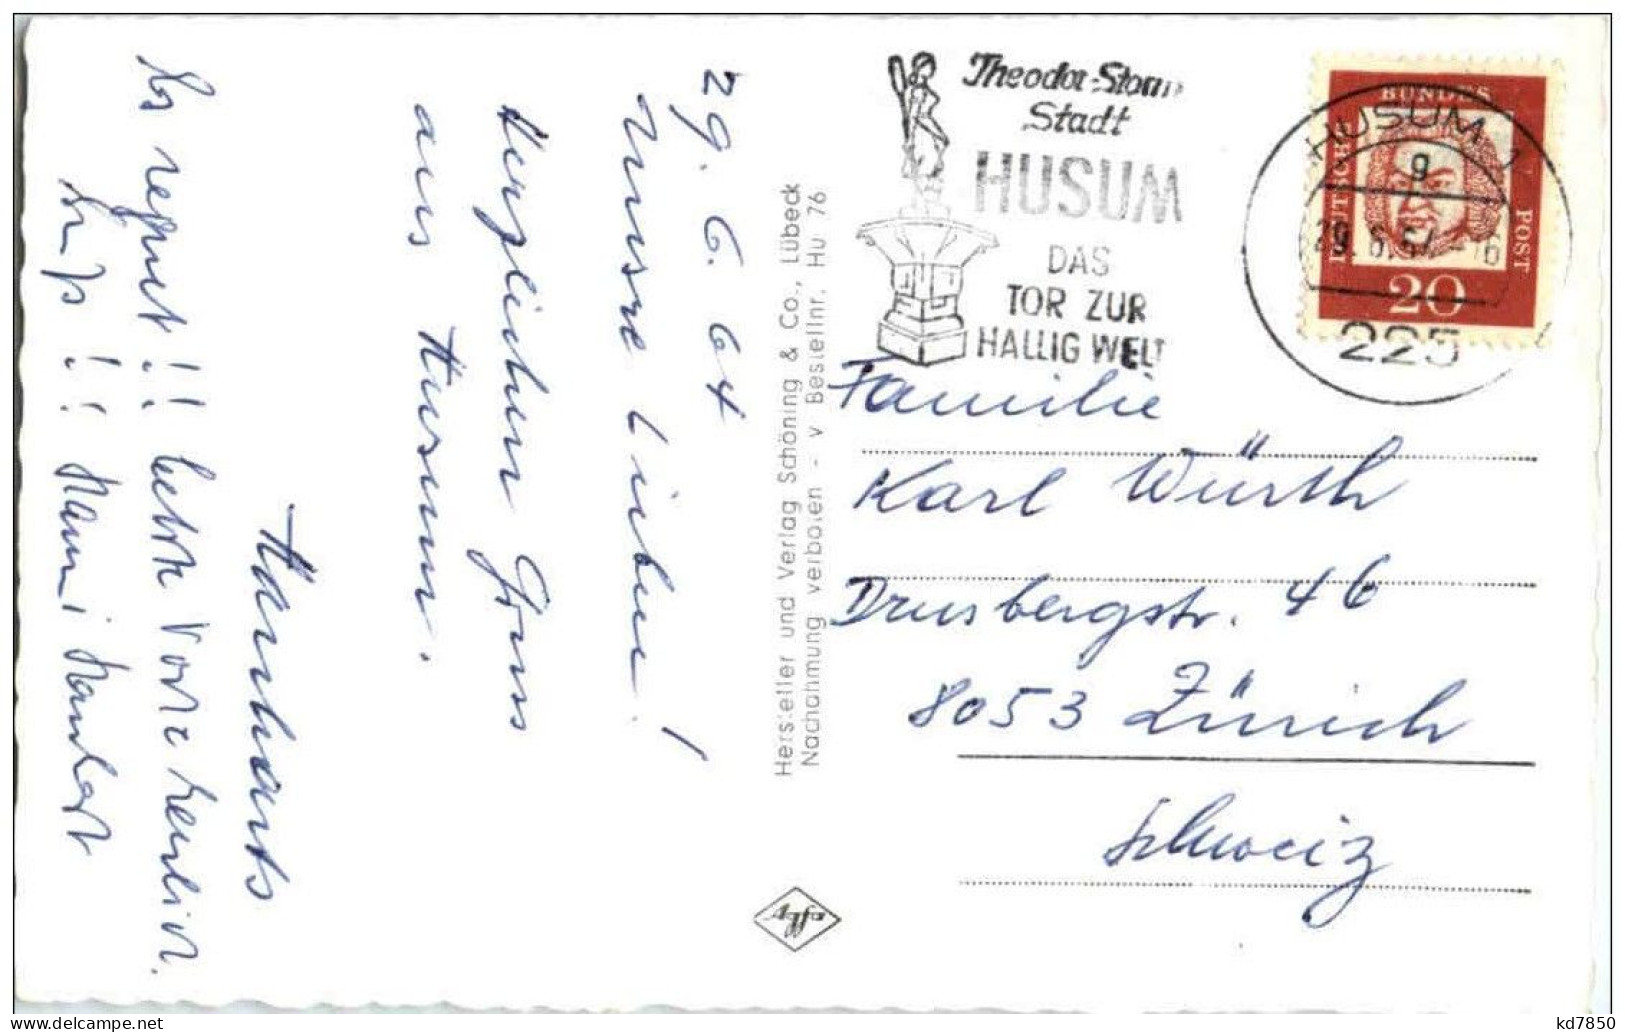 29. 6. 64
Unsre Lieben!
Herzlichen Gruss
aus Husum.
Hanharts
Es regnet!! liebe
Hanni Hanhart
Hersteller und Verlag Schöning & Co., Lübeck
Nachahmung verboten - v Bestellnr. Hu 76
Theodor-Storm
Stadt
HUSUM
DAS
TOR ZUR
HALLIG WELT
HUSUM 1
g
29.6.64-16
225
DEUTSCHE BUNDESPOST
20
Familie
Karl Würth
Drusbergstr. 46
8053 Zürich
Schweiz
kd7850